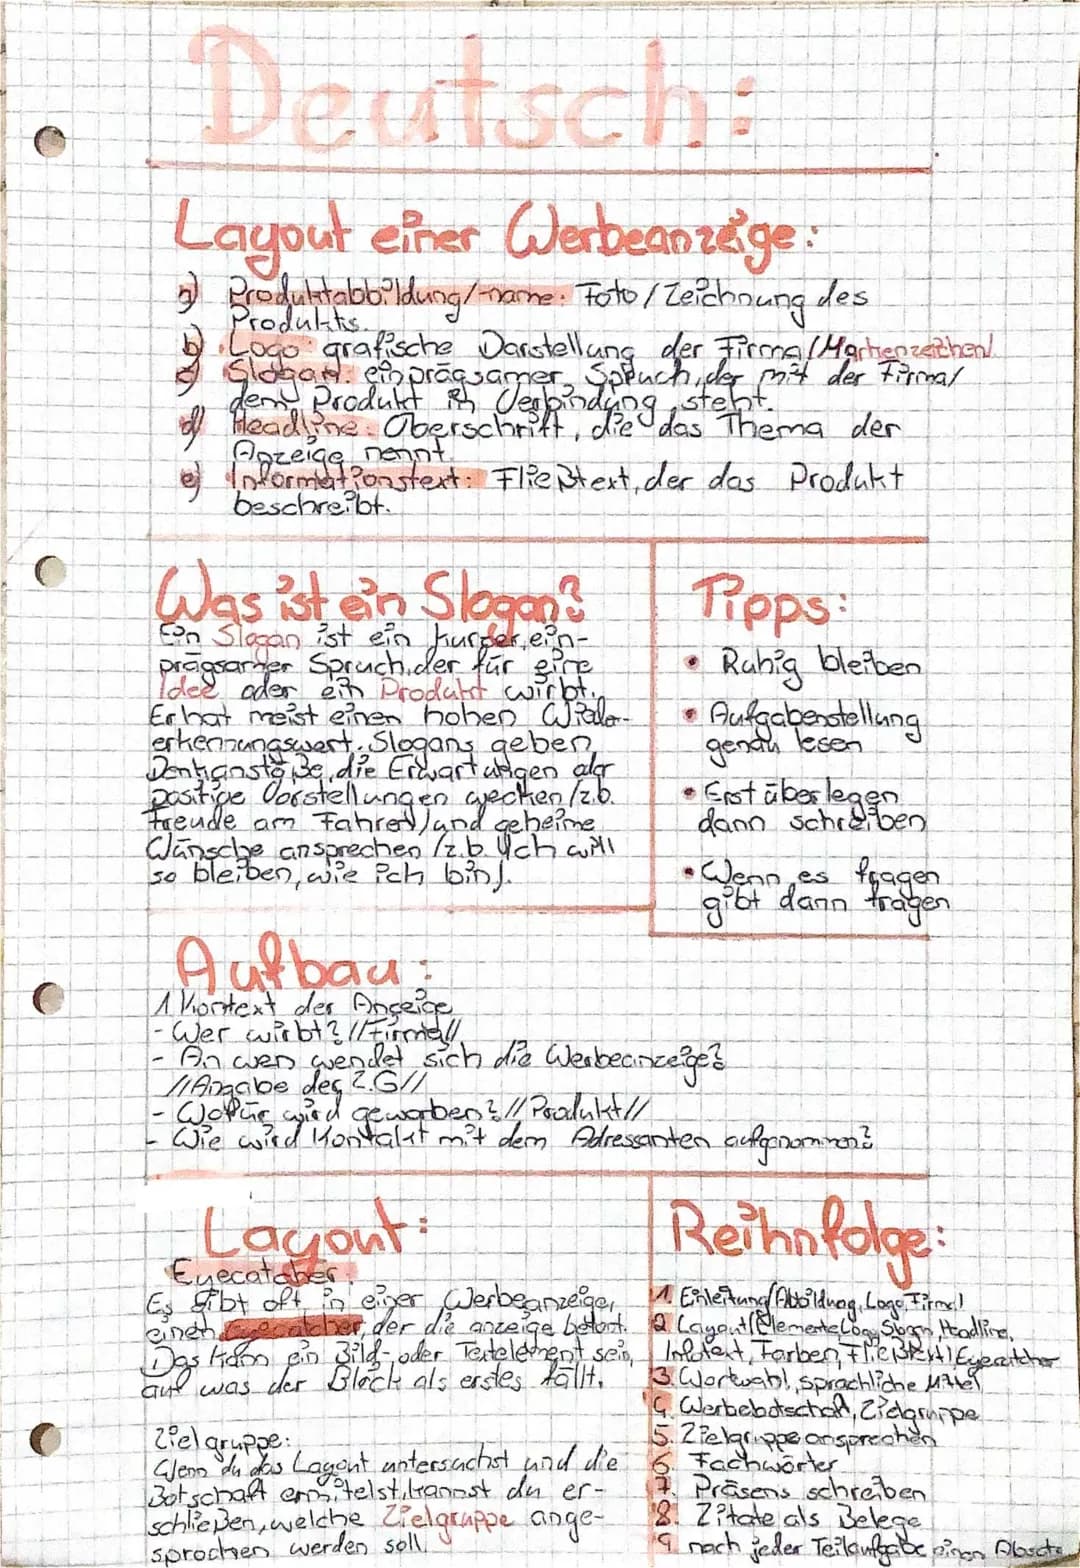 Deutsch:
Layout einer Werbeanzeige:
a) Produktabbildung/-name: Foto/Zeichnung des
Produkts.
b) Logo: grafische Darstellung der Firma/Markenzeichen/
c) Slogan: einprägsamer Spruch, der mit der Firma/
dem Produkt in Verbindung steht.
d) Headline: Überschrift, die das Thema der
Anzeige nennt.
e) Informationstext: Fließtext, der das Produkt
beschreibt.
Was ist ein Slogan?
Ein Slogan ist ein kurzer, ein-
prägsamer Spruch, der für eine
Idee oder ein Produkt wirbt.
Er hat meist einen hohen Wieder-
erkennungswert. Slogans geben
Denkanstöße, die Erwartungen oder
positive Vorstellungen wecken (z.b.
Freude am Fahren) und geheime
Wünsche ansprechen (z.b. Ich will
so bleiben, wie ich bin).
Tipps:
• Ruhig bleiben
• Aufgabenstellung
genau lesen
• Erst überlegen
dann schreiben
• Wenn es fragen
gibt dann fragen
Aufbau:
1 Kontext der Anzeige
- Wer wirbt? //Firma//
- An wen wendet sich die Werbeanzeige?
//Angabe der Z.G//
- Wofür wird geworben? //Produkt//
- Wie wird Kontakt mit dem Adressanten aufgenommen?
Layout:
Eyecatcher:
Es gibt oft in einer Werbeanzeige,
einen Eyecatcher, der die anzeige betont.
Das kann ein Bild- oder Textelement sein,
auf was der Block als erstes fällt.
Zielgruppe:
Wenn du das Layout untersuchst und die
Botschaft ermittelst, kannst du er-
schließen, welche Zielgruppe ange-
sprochen werden soll.
Reihnfolge:
1 Einleitung (Abbildung, Logo, Firma)
2 Layout (Elemente Logo, Slogan, Headline,
Infotext, Farben, Fließtext) Eyecatcher
3. Wortwahl, sprachliche Mittel
4. Werbebotschaft, Zielgruppe
5. Zielgruppe ansprechen
6. Fachwörter
7. Präsens schreiben
8. Zitate als Belege
9. nach jeder Teilaufgabe einen Absatz